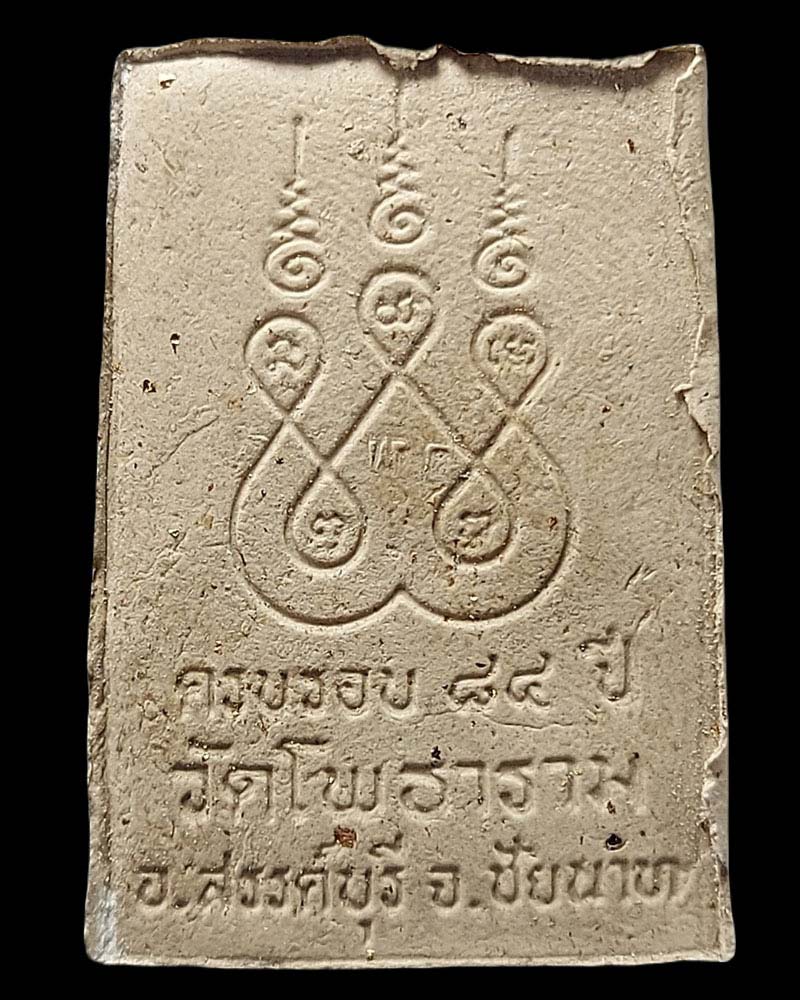 ครบรอบ ๘๔ ปี
วัดโพธาราม
อ.สรรค์บุรี จ.ชัยนาท